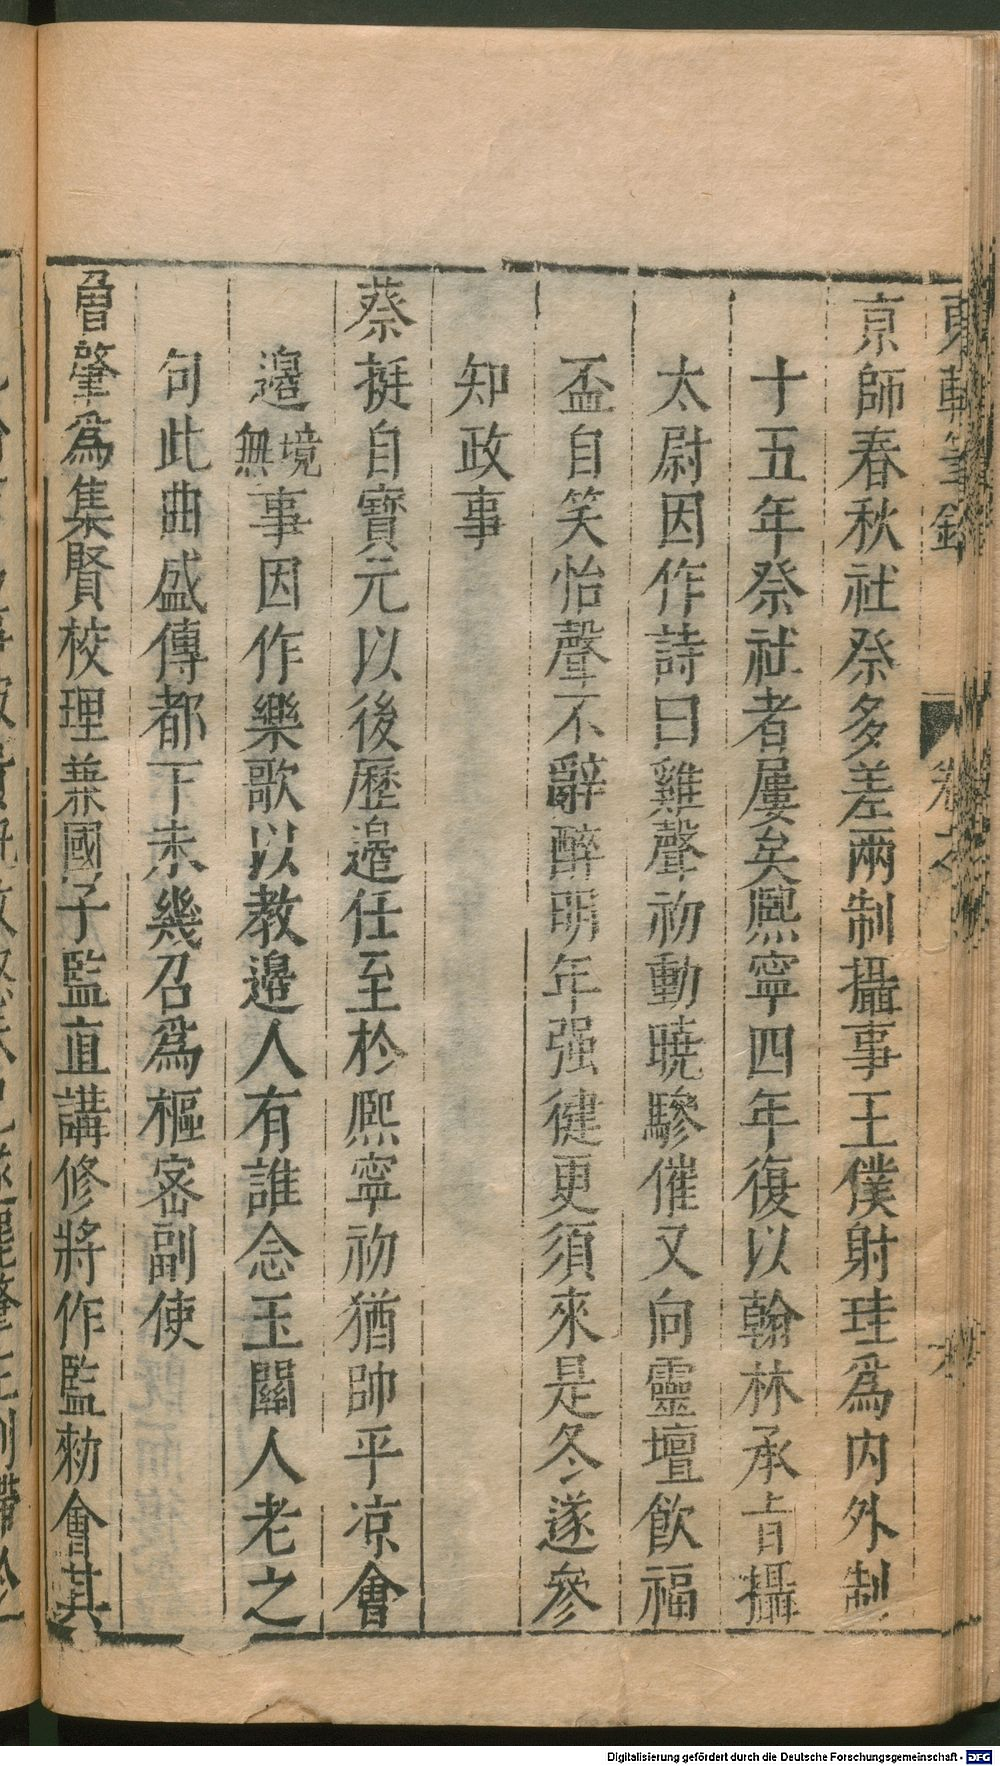 京師春秋社祭多差兩制攝事王僕射珪爲內外制
十五年祭社者屢矣熈寧四年復以翰林承㫖攝
太尉因作詩曰雞聲初動曉驂催又向靈壇飮福
盃自笑怡聲不辭醉明年强健更須來是冬遂參
知政事
蔡挺自寶元以後歷邉任至於熈寧初猶帥平凉會
邉境無事因作樂歌以教邉人有誰念玉關人老之
句此曲盛傳都下未幾召爲樞宻副使
曾肇爲集賢校理蒹國子監直講修將作監勑會其
Digitalisierung gefördert durch die Deutsche Forschungsgemeinschaft - DFG